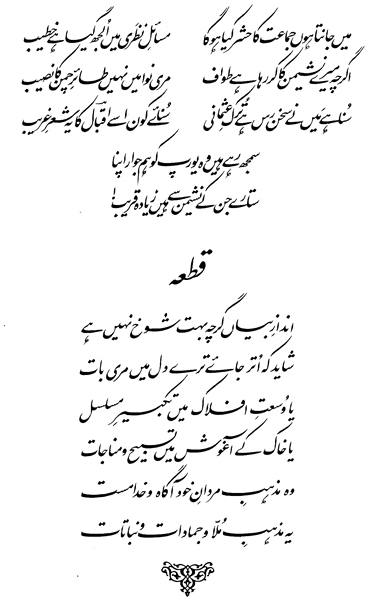 میں جانتا ہوں جماعت کا حشر کیا ہو گا مسائلِ نظَری میں اُلجھ گیا ہے خطیب
اگرچہ میرے نشیمن کا کر رہا ہے طواف مری نوا میں نہیں طائرِ چمن کا نصیب
سُنا ہے مَیں نے سخن رس ہے تُرکِ عثمانی سُنائے کون اسے اقبالؔ کا یہ شعرِ غریب
سمجھ رہے ہیں وہ یورپ کو ہم جوار اپنا
ستارے جن کے نشیمن سے ہیں زیادہ قریب!
قطعہ
اندازِ بیاں گرچہ بہت شوخ نہیں ہے
شاید کہ اُتر جائے ترے دل میں مری بات
یا وُسعتِ افلاک میں تکبیرِ مسلسل
یا خاک کے آغوش میں تسبیح و مناجات
وہ مذہبِ مردانِ خود آگاہ و خدا مست
یہ مذہبِ مُلّا و جمادات و نباتات